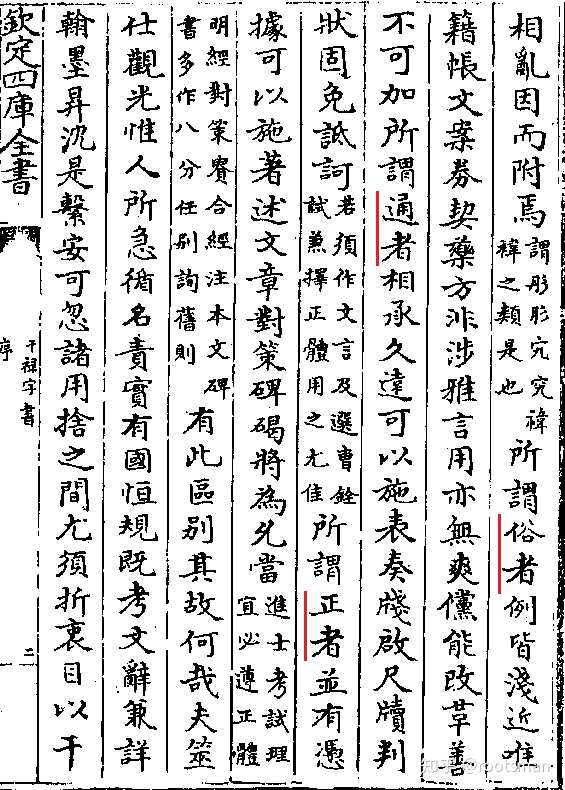 相亂因而附焉謂彤肜宄究禕褘之類是也所謂俗者例皆淺近唯
籍帳文案券契藥方非涉雅言用亦無爽儻能改革善
不可加所謂通者相承久遠可以施表奏牋啟尺牘判
狀固免詆訶若須作文言及選曹銓試兼擇正體用之尤佳所謂正者並有憑
據可以施著述文章對策碑碣將為允當進士考試理宜必遵正體
明經對策貴合經注本文碑書多作八分任別詢舊則有此區別其故何哉夫筮
仕觀光惟人所急循名責實有國恒規既考文辭兼詳
翰墨昇沉是繫安可忽諸用捨之間尤須折衷目以干
欽定四庫全書
干祿字書
序
二
知乎 @rootsman